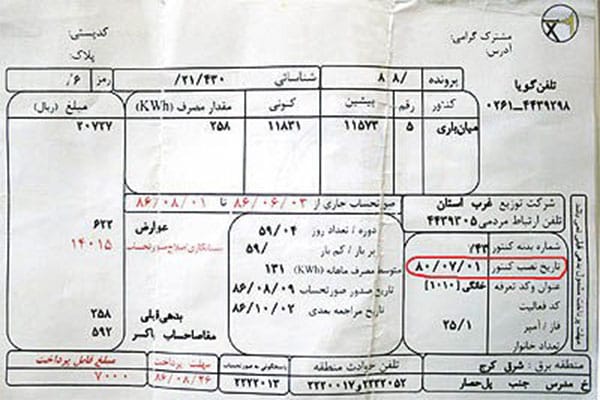 مشترک گرامی:
آدرس:
کدپستی:
پلاک:
تلفن گویا
۰۲۶۱-۴۴۳۹۲۹۸
پرونده ۸۸/ شناسائی ۲۱/۴۳۰/ رمز ۶/
کنتور رقم پیشین کنونی مقدار مصرف (KWh) مبلغ (ریال)
میان‌باری ۵ ۱۱۵۷۳ ۱۱۸۳۱ ۲۵۸ ۲۰۷۲۷
صورتحساب جاری از ۸۶/۰۶/۰۳ تا ۸۶/۰۸/۰۱
شرکت توزیع غرب استان
تلفن ارتباط مردمی ۴۴۳۹۳۰۵
شماره بدنه کنتور ۷۴۳
تاریخ نصب کنتور ۸۰/۰۷/۰۱
عنوان وکد تعرفه خانگی [۱۰۱۰]
کد فعالیت
فاز / آمپر ۲۵/۱
تعداد خانوار
دوره / تعداد روز ۵۹/۰۴
پر بار / کم بار ۵۹/
متوسط مصرف ماهانه (KWh) ۱۳۱
تاریخ صدور صورتحساب ۸۶/۰۸/۰۹
تاریخ مراجعه بعدی ۸۶/۱۰/۰۲
عوارض ۶۲۲
بستانکاری/اصلاح صورتحساب ۱۴۰۱۵
بدهی قبلی ۲۵۸
مفاصاحساب باکسر ۵۹۲
منطقه برق: شرق کرج
خ مدرس جنب پل‌حصار
تلفن حوادث منطقه
۲۲۳۲۰۵۲ و ۲۲۲۰۰۱۷
پاسخگوئی به صورتحساب
۲۲۲۲۰۱۳
مهلت پرداخت
۸۶/۰۸/۲۶
مبلغ قابل پرداخت
۷۰۰۰